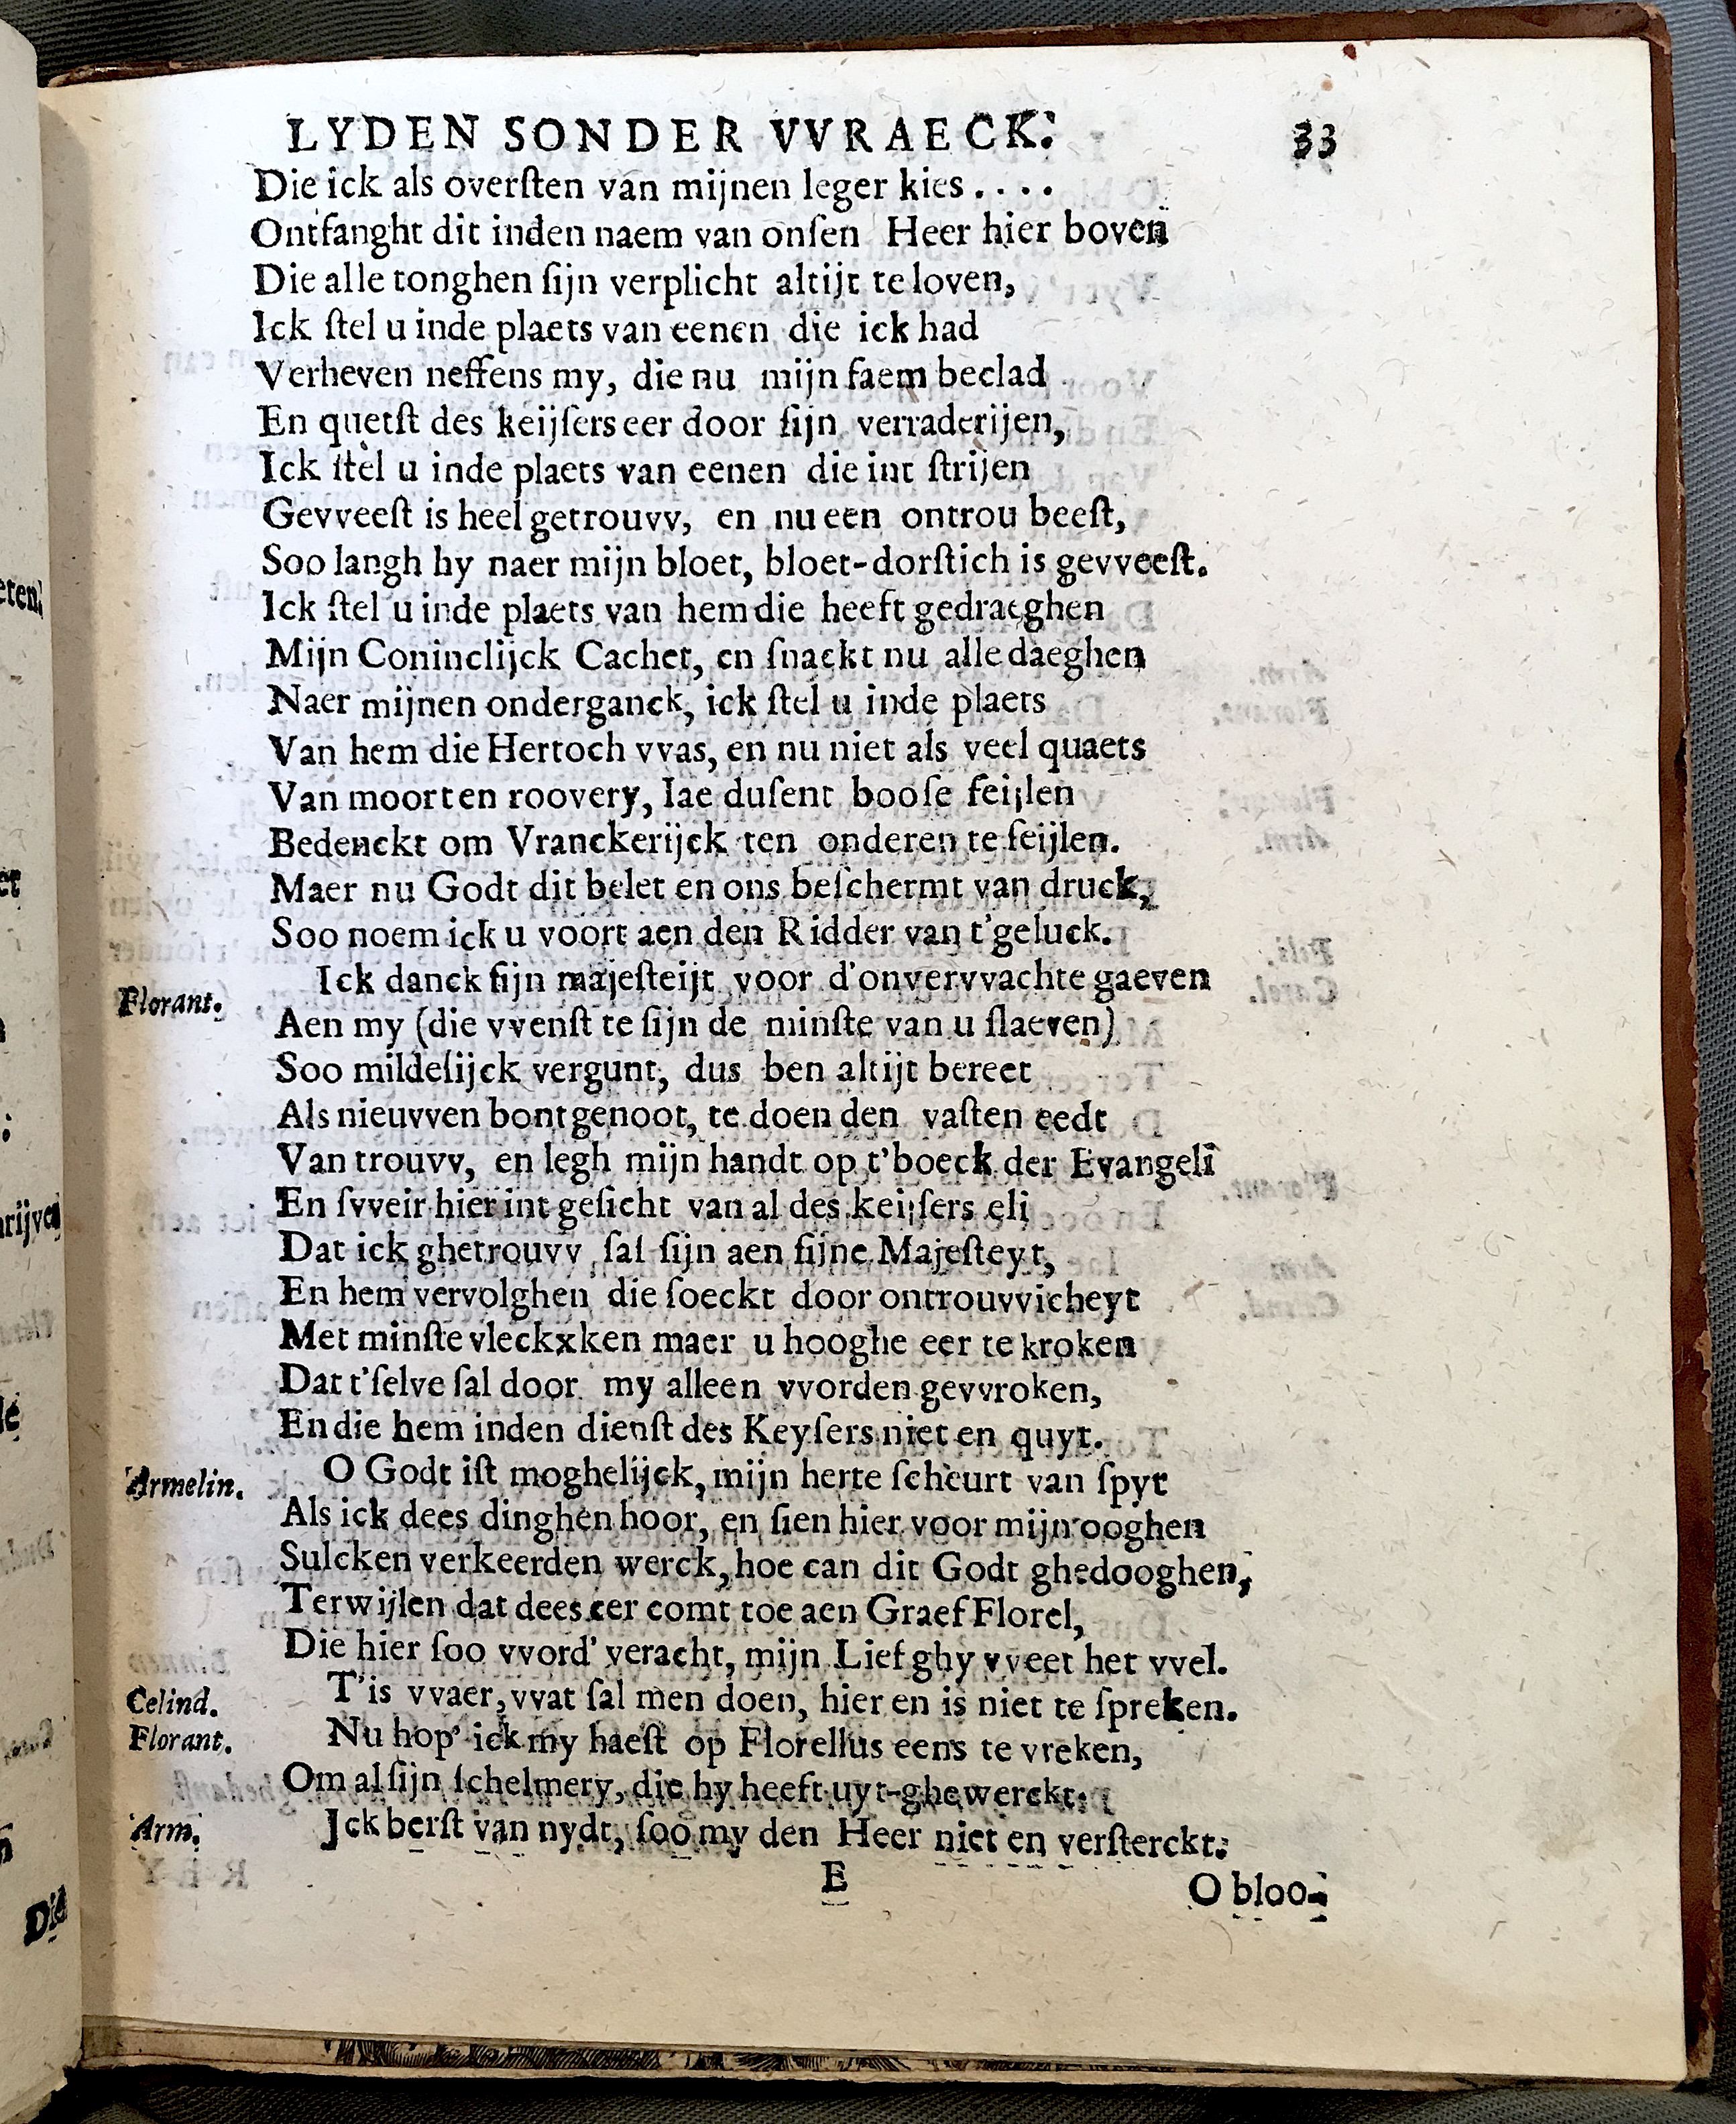 LYDEN SONDER VVRAECK. 33
Die ick als oversten van mijnen leger kies . . . .
Ontfanght dit inden naem van onsen Heer hier boven
Die alle tonghen sijn verplicht altijt te loven,
Ick stel u inde plaets van eenen die ick had
Verheven neffens my, die nu mijn faem beclad
En quetst des keijsers eer door sijn verraderijen,
Ick stel u inde plaets van eenen die int strijen
Gevveest is heel getrouvv, en nu een ontrou beest,
Soo langh hy naer mijn bloet, bloet-dorstich is gevveest.
Ick stel u inde plaets van hem die heeft gedraeghen
Mijn Coninclijck Cachet, en snackt nu alle daeghen
Naer mijnen onderganck, ick stel u inde plaets
Van hem die Hertoch vvas, en nu niet als veel quaets
Van moort en roovery, Iae dusent boose feijlen
Bedenckt om Vranckerijck ten onderen te feijlen.
Maer nu Godt dit belet en ons beschermt van druck,
Soo noem ick u voort aen den Ridder van t'geluck.
Florant. Ick danck sijn majesteijt voor d'onvervvachte gaeven
Aen my (die vvenst te sijn de minste van u slaeven)
Soo mildelijck vergunt, dus ben altijt bereet
Als nieuvven bontgenoot, te doen den vasten eedt
Van trouvv, en legh mijn handt op t'boeck der Evangeli
En svveir hier int gesicht van al des keijsers eli
Dat ick ghetrouvv sal sijn aen sijne Majesteyt,
En hem vervolghen die soeckt door ontrouvvicheyt
Met minste vleckxken maer u hooghe eer te kroken
Dat t'selve sal door my alleen vvorden gevvroken,
En die hem inden dienst des Keysers niet en quyt.
Armelin. O Godt ist moghelijck, mijn herte scheurt van spyt
Als ick dees dinghen hoor, en sien hier voor mijn ooghen
Sulcken verkeerden werck, hoe can dit Godt ghedooghen,
Terwijlen dat dees eer comt toe aen Graef Florel,
Die hier soo vvord' veracht, mijn Lief ghy vveet het vvel.
Celind. T'is vvaer, vvat sal men doen, hier en is niet te spreken.
Florant. Nu hop' ick my haest op Florellus eens te vreken,
Om al sijn schelmery, die hy heeft uyt-ghewerckt.
Arm. Jck berst van nydt, soo my den Heer niet en versterckt.
E O bloo-